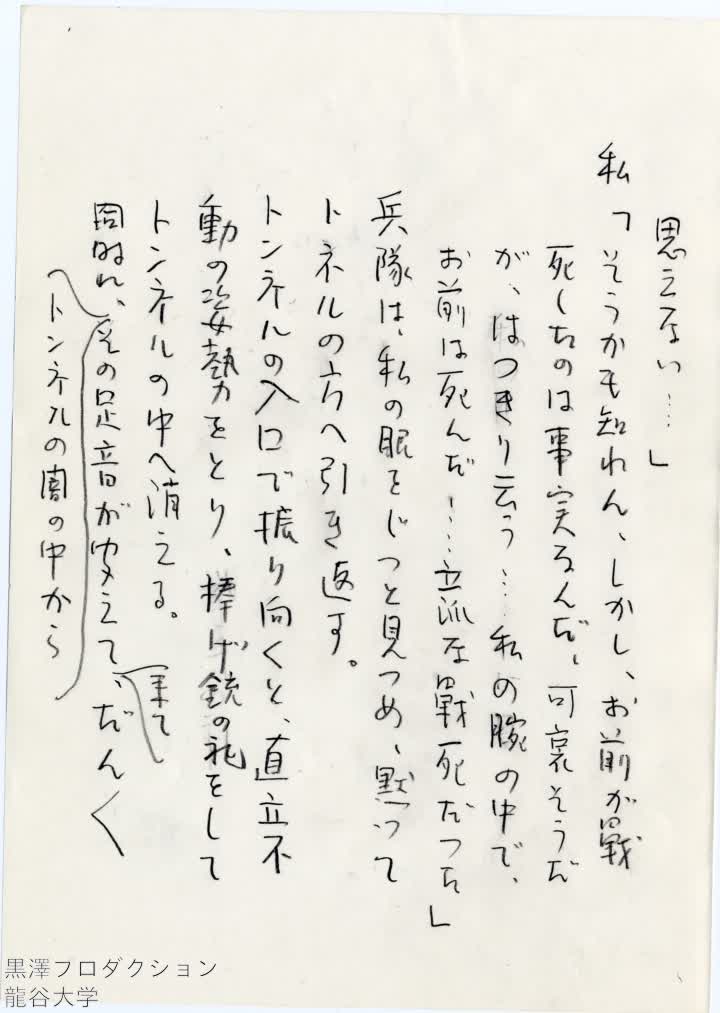 思えない…」
私「そうかも知れん、しかし、お前が戦
死したのは事実なんだ、可哀そうだ
が、はつきり云う…私の腕の中で、
お前は死んだ!…立派な戦死だつた」
兵隊は、私の眼をじつと見つめ、黙つて
トネルの方へ引き返す。
トンネルの入口で振り向くと、直立不
動の姿勢をとり、捧げ銃の礼をして
トンネルの中へ消える。
同時に、その足音が聞えて、だん〱
来て
トンネルの闇の中から
黒澤プロダクション
龍谷大学